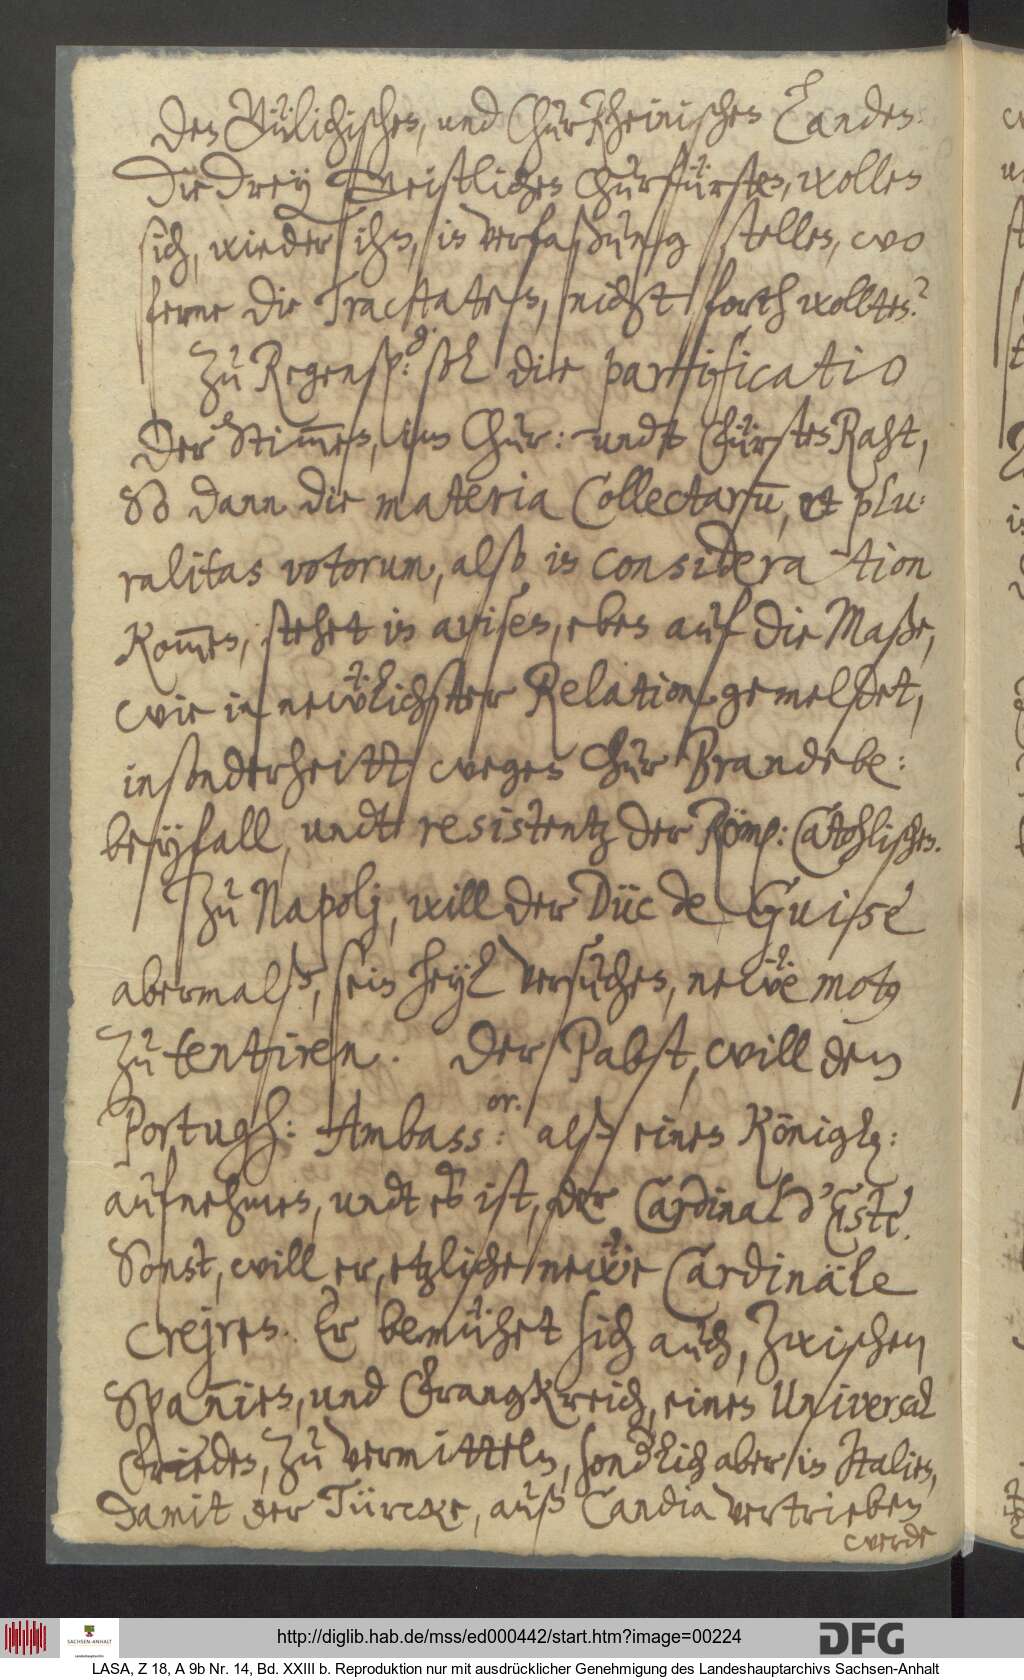 Des Gülichischen, und ChurRheinischen Landes.
Die drey Geistlichen Churfürsten, wollen
sich, wieder ihn, in Verfaßung stellen, wo
ferne die Tractaten, nicht forth wolten.
Zu Regensp: sol die partificatio
Der Stim̄en, im Chur: undt FürstenRaht,
So dann die materia Collectarū, et plu:
ralitas votorum, also in consideration
Kom̄en, stehet in avisen, eben auf die Maße,
wie in newlichster Relation gemeldet,
insonderheitt wegen Chur Brandebe:
beyfall, undt resistentz der Röm: Catohlischen.
Zu Napolj, will der Düc de Guise
abermalß, sein Heyl versuchen, newe motq
zu tentiren. Der Pabst, will den
Portugh: Ambassor: alß einen Königln:
aufnehmen, undt eß ist, der Cardinal d'Esté.
Sonst, will er, etzliche newe Cardinäle
creiren. Er bemühet sich auch, zwischen
Spanien, und Frangkreich, einen Universal
Frieden, zu vermitteln, sondlich aber in Italien,
damit der Türcke, auß Candia vertrieben
werde
http://diglib.hab.de/mss/ed000442/start.htm?image=00224
SACHSEN-ANHALT
DFG
LASA, Z 18, A 9b Nr. 14, Bd. XXIII b. Reproduktion nur mit ausdrücklicher Genehmigung des Landeshauptarchivs Sachsen-Anhalt